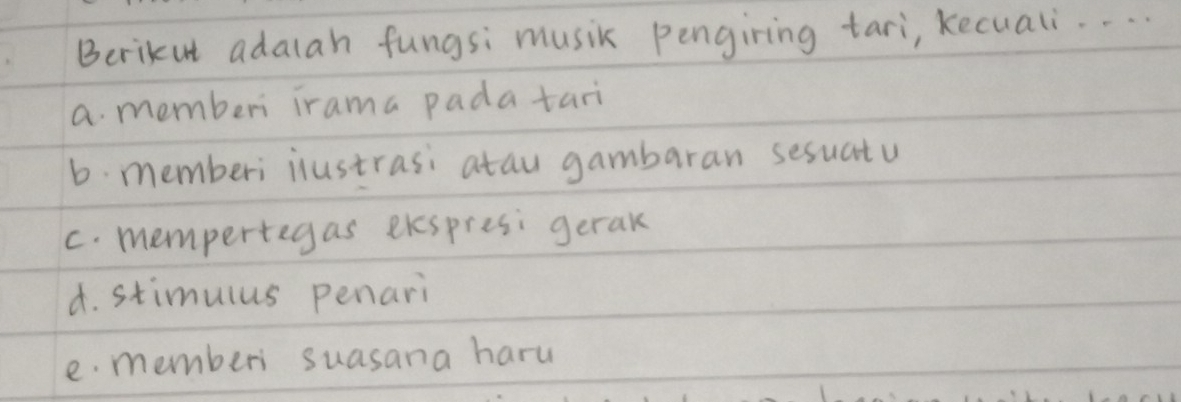 Berikut adalah fungsi musik pengiring tari, kecuali ....
a. memberi irama pada tari
b. memberi ilustrasi atau gambaran sesuatu
c. mempertegas ekspresi gerak
d. stimulus penari
e. memberi suasana haru